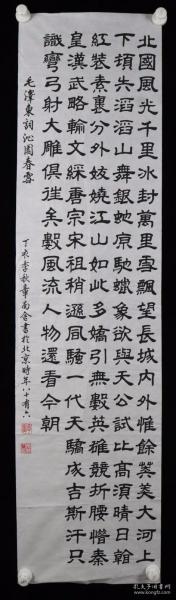 北國風光千里冰封萬里雪飄望長城內外惟餘莽莽大河上
下頓失滔滔山舞銀虵原馳蠟象欲與天公試比高須晴日看
紅裝素裹分外妖嬈江山如此多嬌引無數英雄競折腰惜秦
皇漢武略輸文綵唐宗宋祖稍遜風騷一代天驕成吉斯汗只
識彎弓射大雕俱往矣數風流人物還看今朝
毛澤東詞沁園春雪
丁亥李秋章南舍書於北京時年八十有六